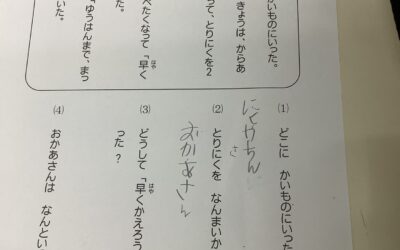 かいものにいった。
きょうは、からあ
って、とりにくを2
べたくなって「早く
はや
た。
ゆうはんまで、まっ
いた。
(1) どこに かいものにいった
(2) とりにくを なんまいか
おかあさん
(3) どうして「早くかえろう
はや
った?
(4) おかあさんは なんとい